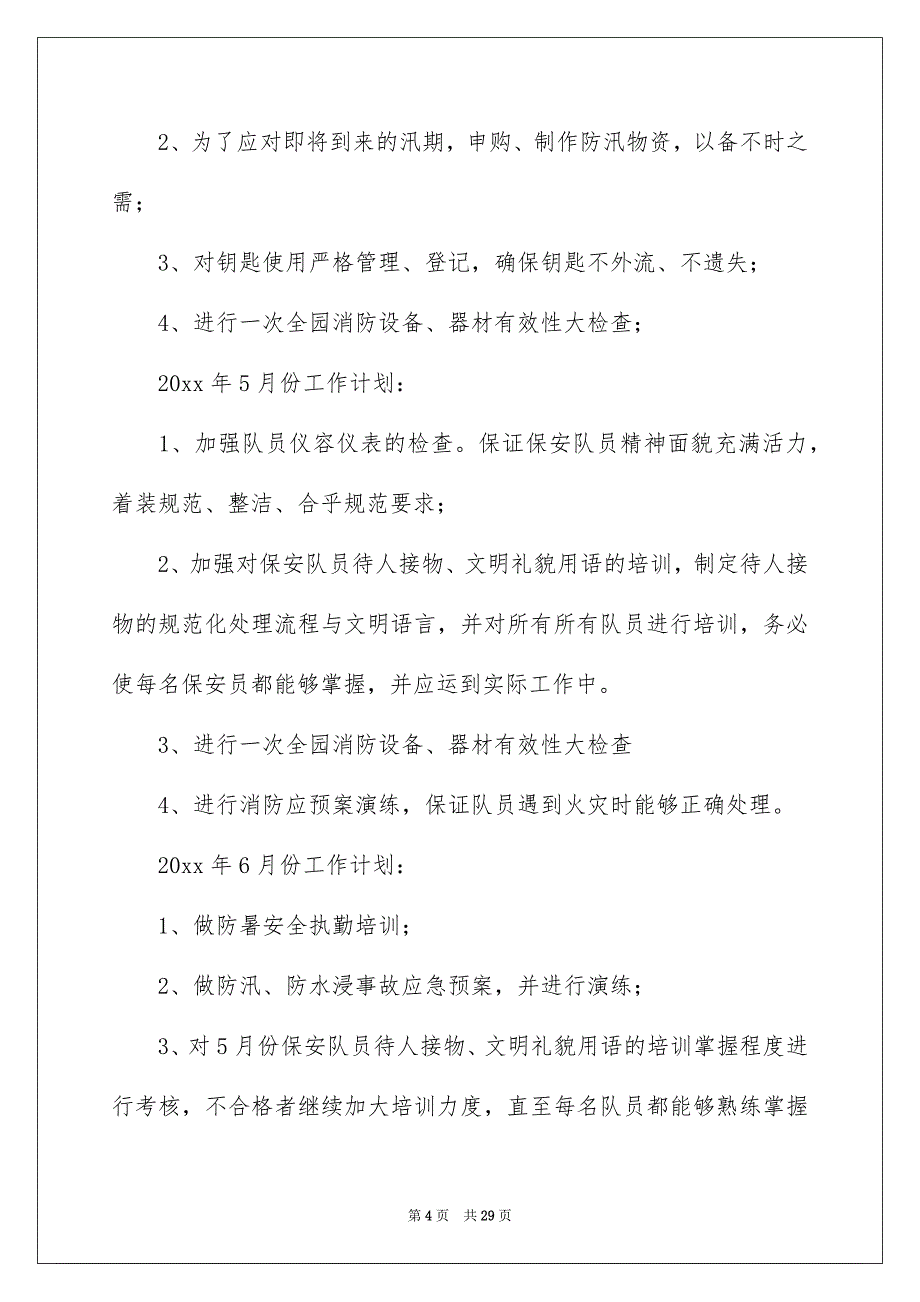 2、为了应对即将到来的汛期，申购、制作防汛物资，以备不时之
需；
3、对钥匙使用严格管理、登记，确保钥匙不外流、不遗失；
4、进行一次全园消防设备、器材有效性大检查；
20xx 年 5 月份工作计划：
1、加强队员仪容仪表的检查。保证保安队员精神面貌充满活力，
着装规范、整洁、合乎规范要求；
2、加强对保安队员待人接物、文明礼貌用语的培训，制定待人接
物的规范化处理流程与文明语言，并对所有所有队员进行培训，务必
使每名保安员都能够掌握，并应运到实际工作中。
3、进行一次全园消防设备、器材有效性大检查
4、进行消防应预案演练，保证队员遇到火灾时能够正确处理。
20xx 年 6 月份工作计划：
1、做防暑安全执勤培训；
2、做防汛、防水浸事故应急预案，并进行演练；
3、对 5 月份保安队员待人接物、文明礼貌用语的培训掌握程度进
行考核，不合格者继续加大培训力度，直至每名队员都能够熟练掌握
第 4 页 共 29 页